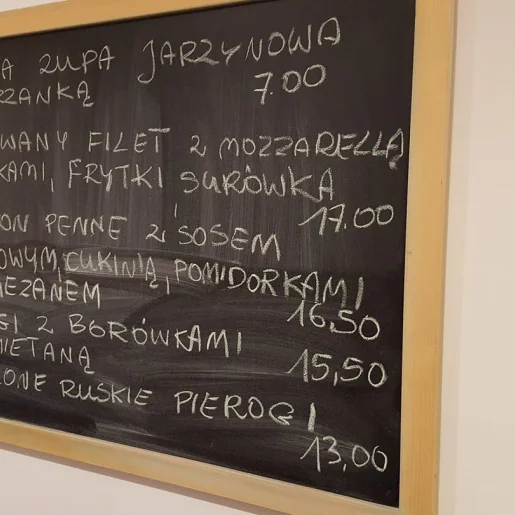 A ZUPA JARZYNOWA
ZANKĄ 7.00
WANY FILET Z MOZZARELLĄ
KAMI, FRYTKI SURÓWKA
17.00
ON PENNE Z SOSEM
OWYM, CUKINIĄ, POMIDORKAMI
EZANEM 16,50
GI Z BORÓWKAMI
MIETANĄ 15,50
ONE RUSKIE PIEROGI
13,00